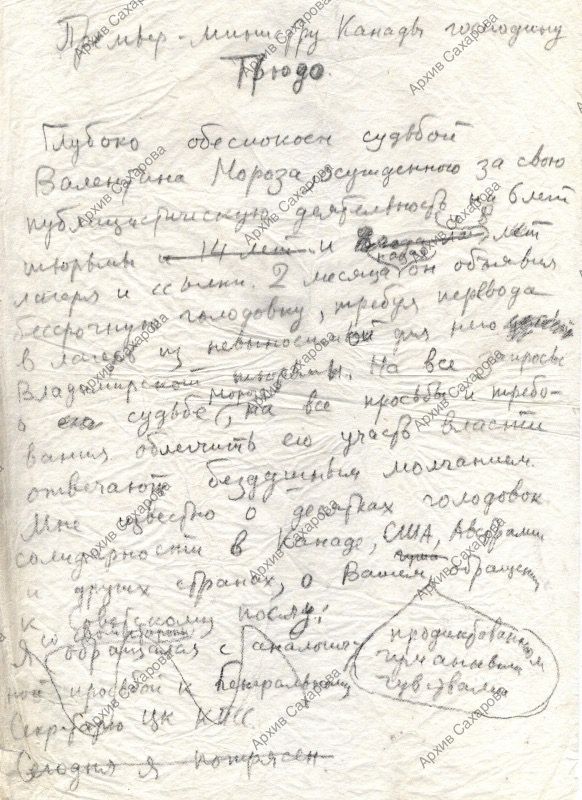 Премьер-министру Канады господину
Трюдо.
Глубоко обеспокоен судьбой
Валентина Мороза осужденного за свою
публицистическую деятельность на 6 лет
тюрьмы и 14 лет и 8 лет
лагеря и ссылки. 2 месяца назад он объявил
бессрочную голодовку, требуя перевода
в лагерь из невыносимой для него
Владимирской тюрьмы. На все
о его судьбе Мороза, на все просьбы и требо-
вания облегчить его участь власти
отвечают бездушным молчанием.
Мне известно о десятках голодовок
солидарности в Канаде, США, Австралии
и других странах, о Вашем обращении,
продиктованном
гуманными
чувствами
к советскому послу.
Я обращался с аналогич-
ной просьбой к Генеральному
Секретарю ЦК КПСС.
Сегодня я потрясен
Архив Сахарова